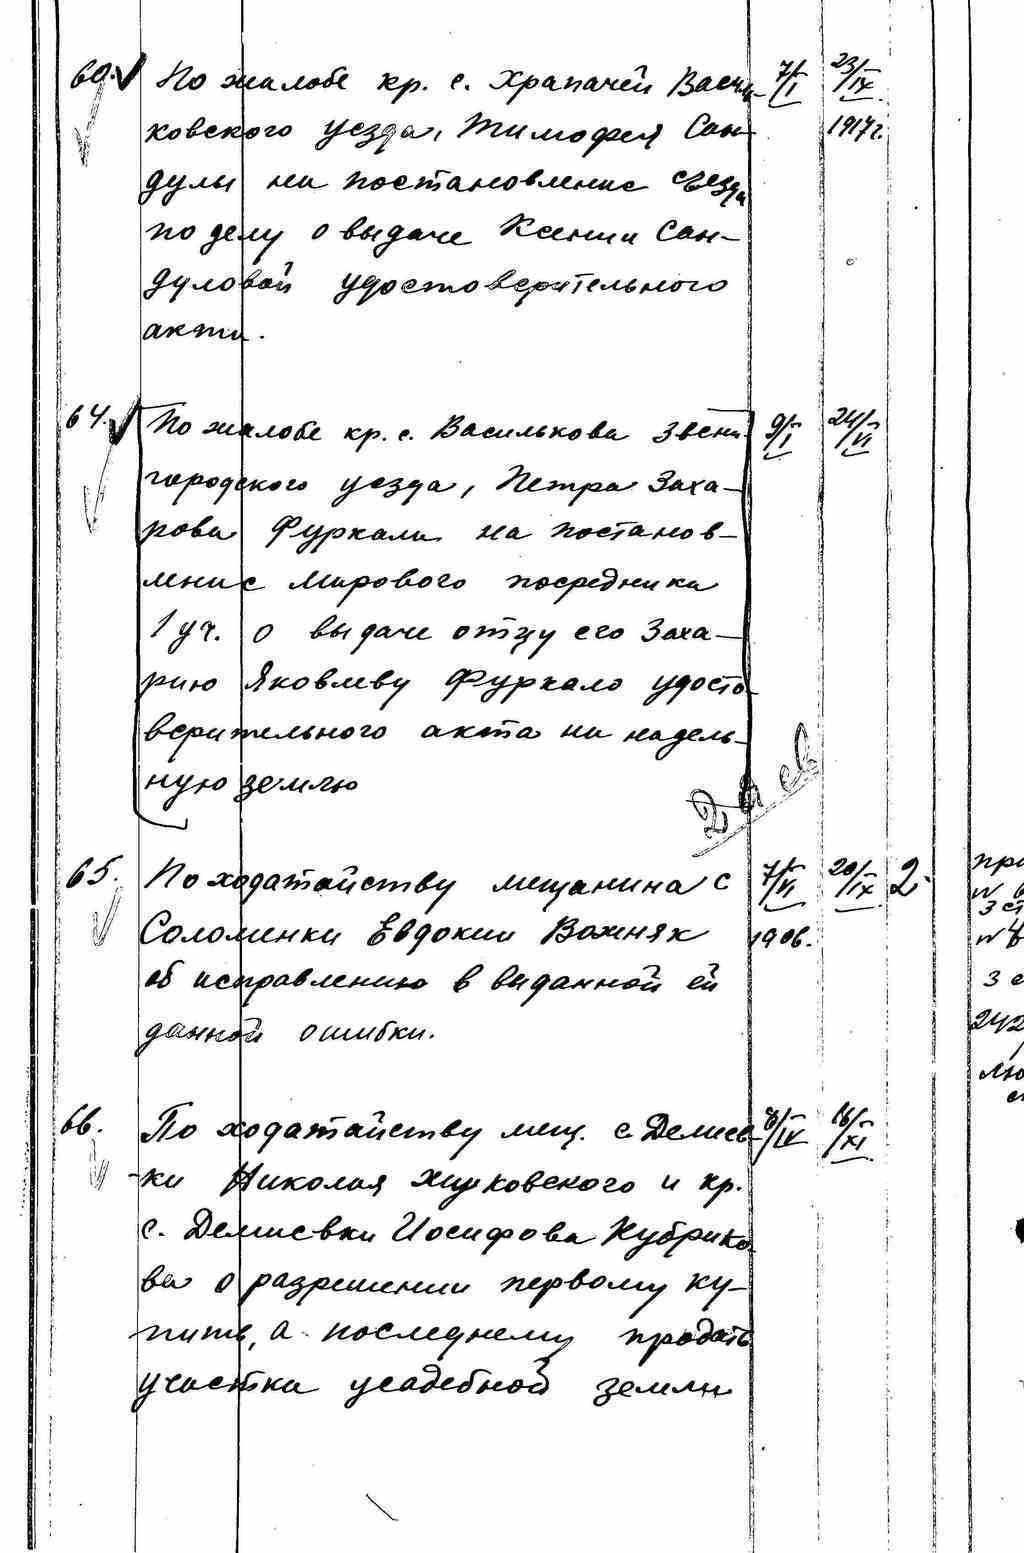 60. По жалобе кр. с. Храпачей Василь- 7/I 23/IX
ковского уезда, Тимофея Сан- 1917г.
дулы на постановление съезда
по делу о выдаче Ксении Сан-
дуловой удостоверительного
акта.
64. По жалобе кр. с. Василькова Звени- 9/I 24/VI
городского уезда, Петра Заха-
рова Фуркала на постанов-
ление мирового посредника
1 уч. о выдаче отцу его Заха-
рию Яковлеву Фуркало удосто-
верительного акта на надель-
ную землю
65. По ходатайству мещанина с 7/VI 20/IX 2.
Соломенки Евдокии Вожняк 1906.
об исправлению в выданной ей
данной ошибки.
66. По ходатайству мещ. с Демиев- 8/IV 16/XI
ки Николая Жуковского и кр.
с. Демиевки Иосифова Кубрико-
ва о разрешении первому ку-
пить, а последнему продать
участка усадебной земли